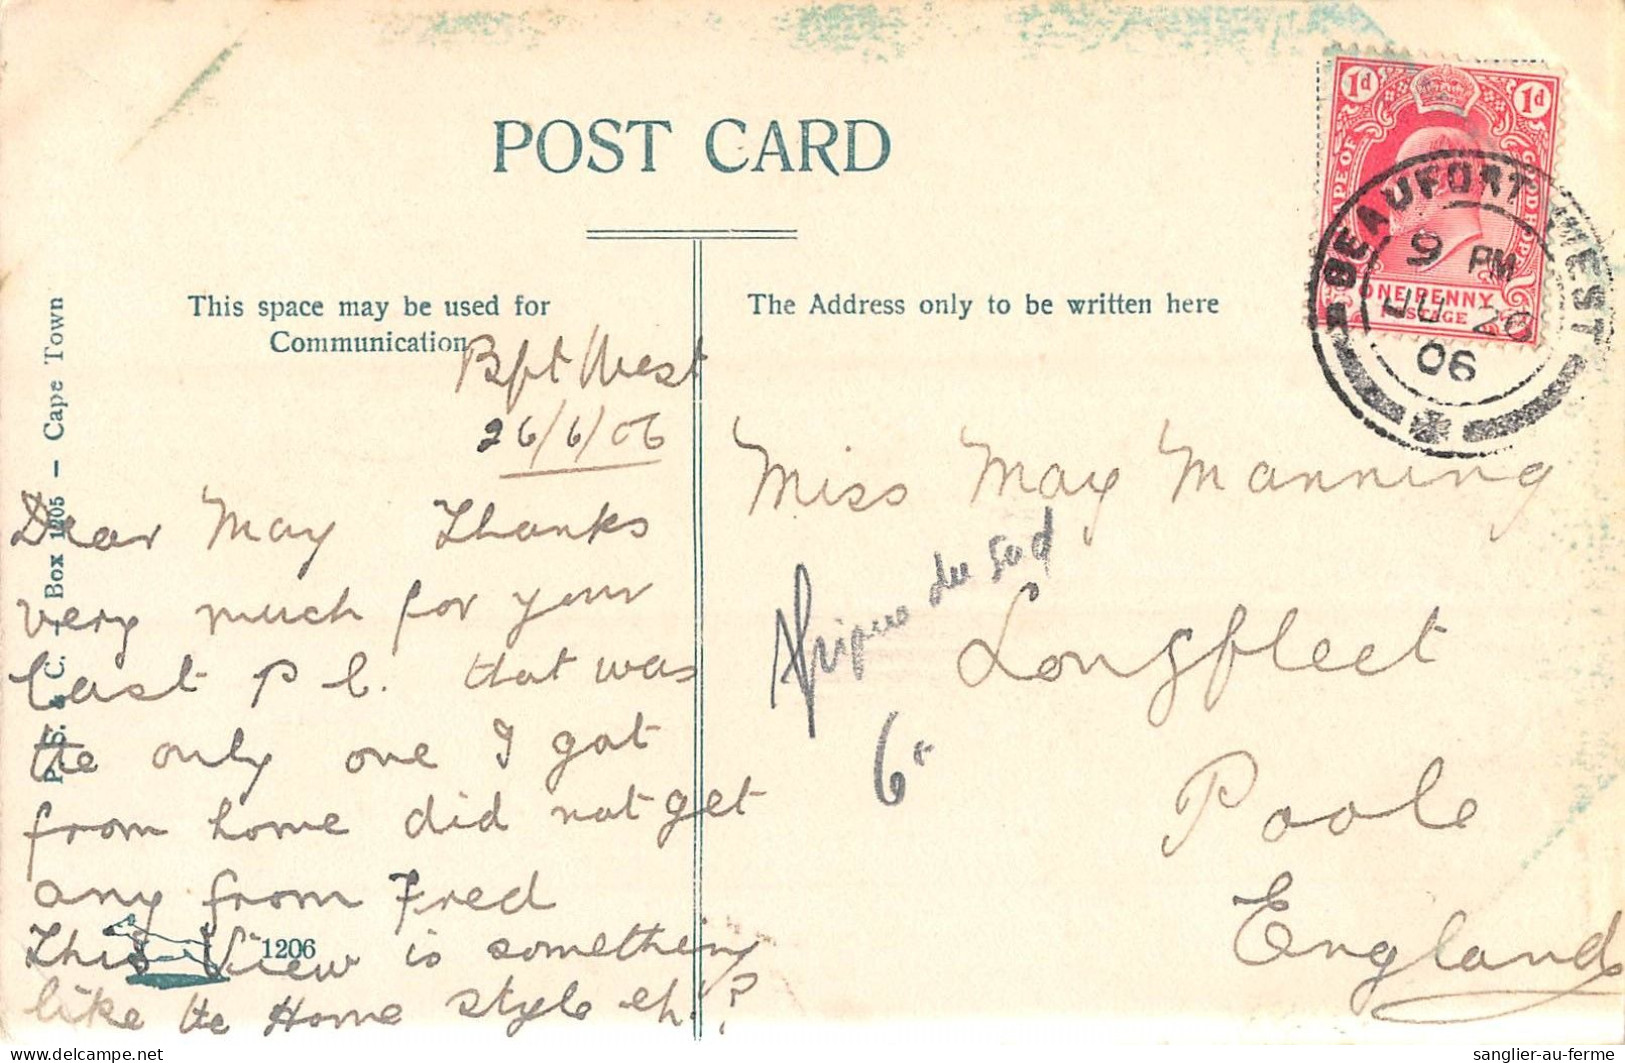 POST CARD
This space may be used for
Communication
The Address only to be written here
1d 1d
CAPE OF GOOD HOPE
ONE PENNY
POSTAGE
BEAUFORT WEST
9 PM
JU 26
06
Box 1205 — Cape Town
Bft West
26/6/06
Dear May Thanks
very much for your
last P C. that was
the only one I got
from home did not get
any from Fred
This View is something
like the Home style eh.?
1206
Miss May Manning
Longfleet
Poole
England
Afrique du Sud
6
delcampe.net
sanglier-au-ferme